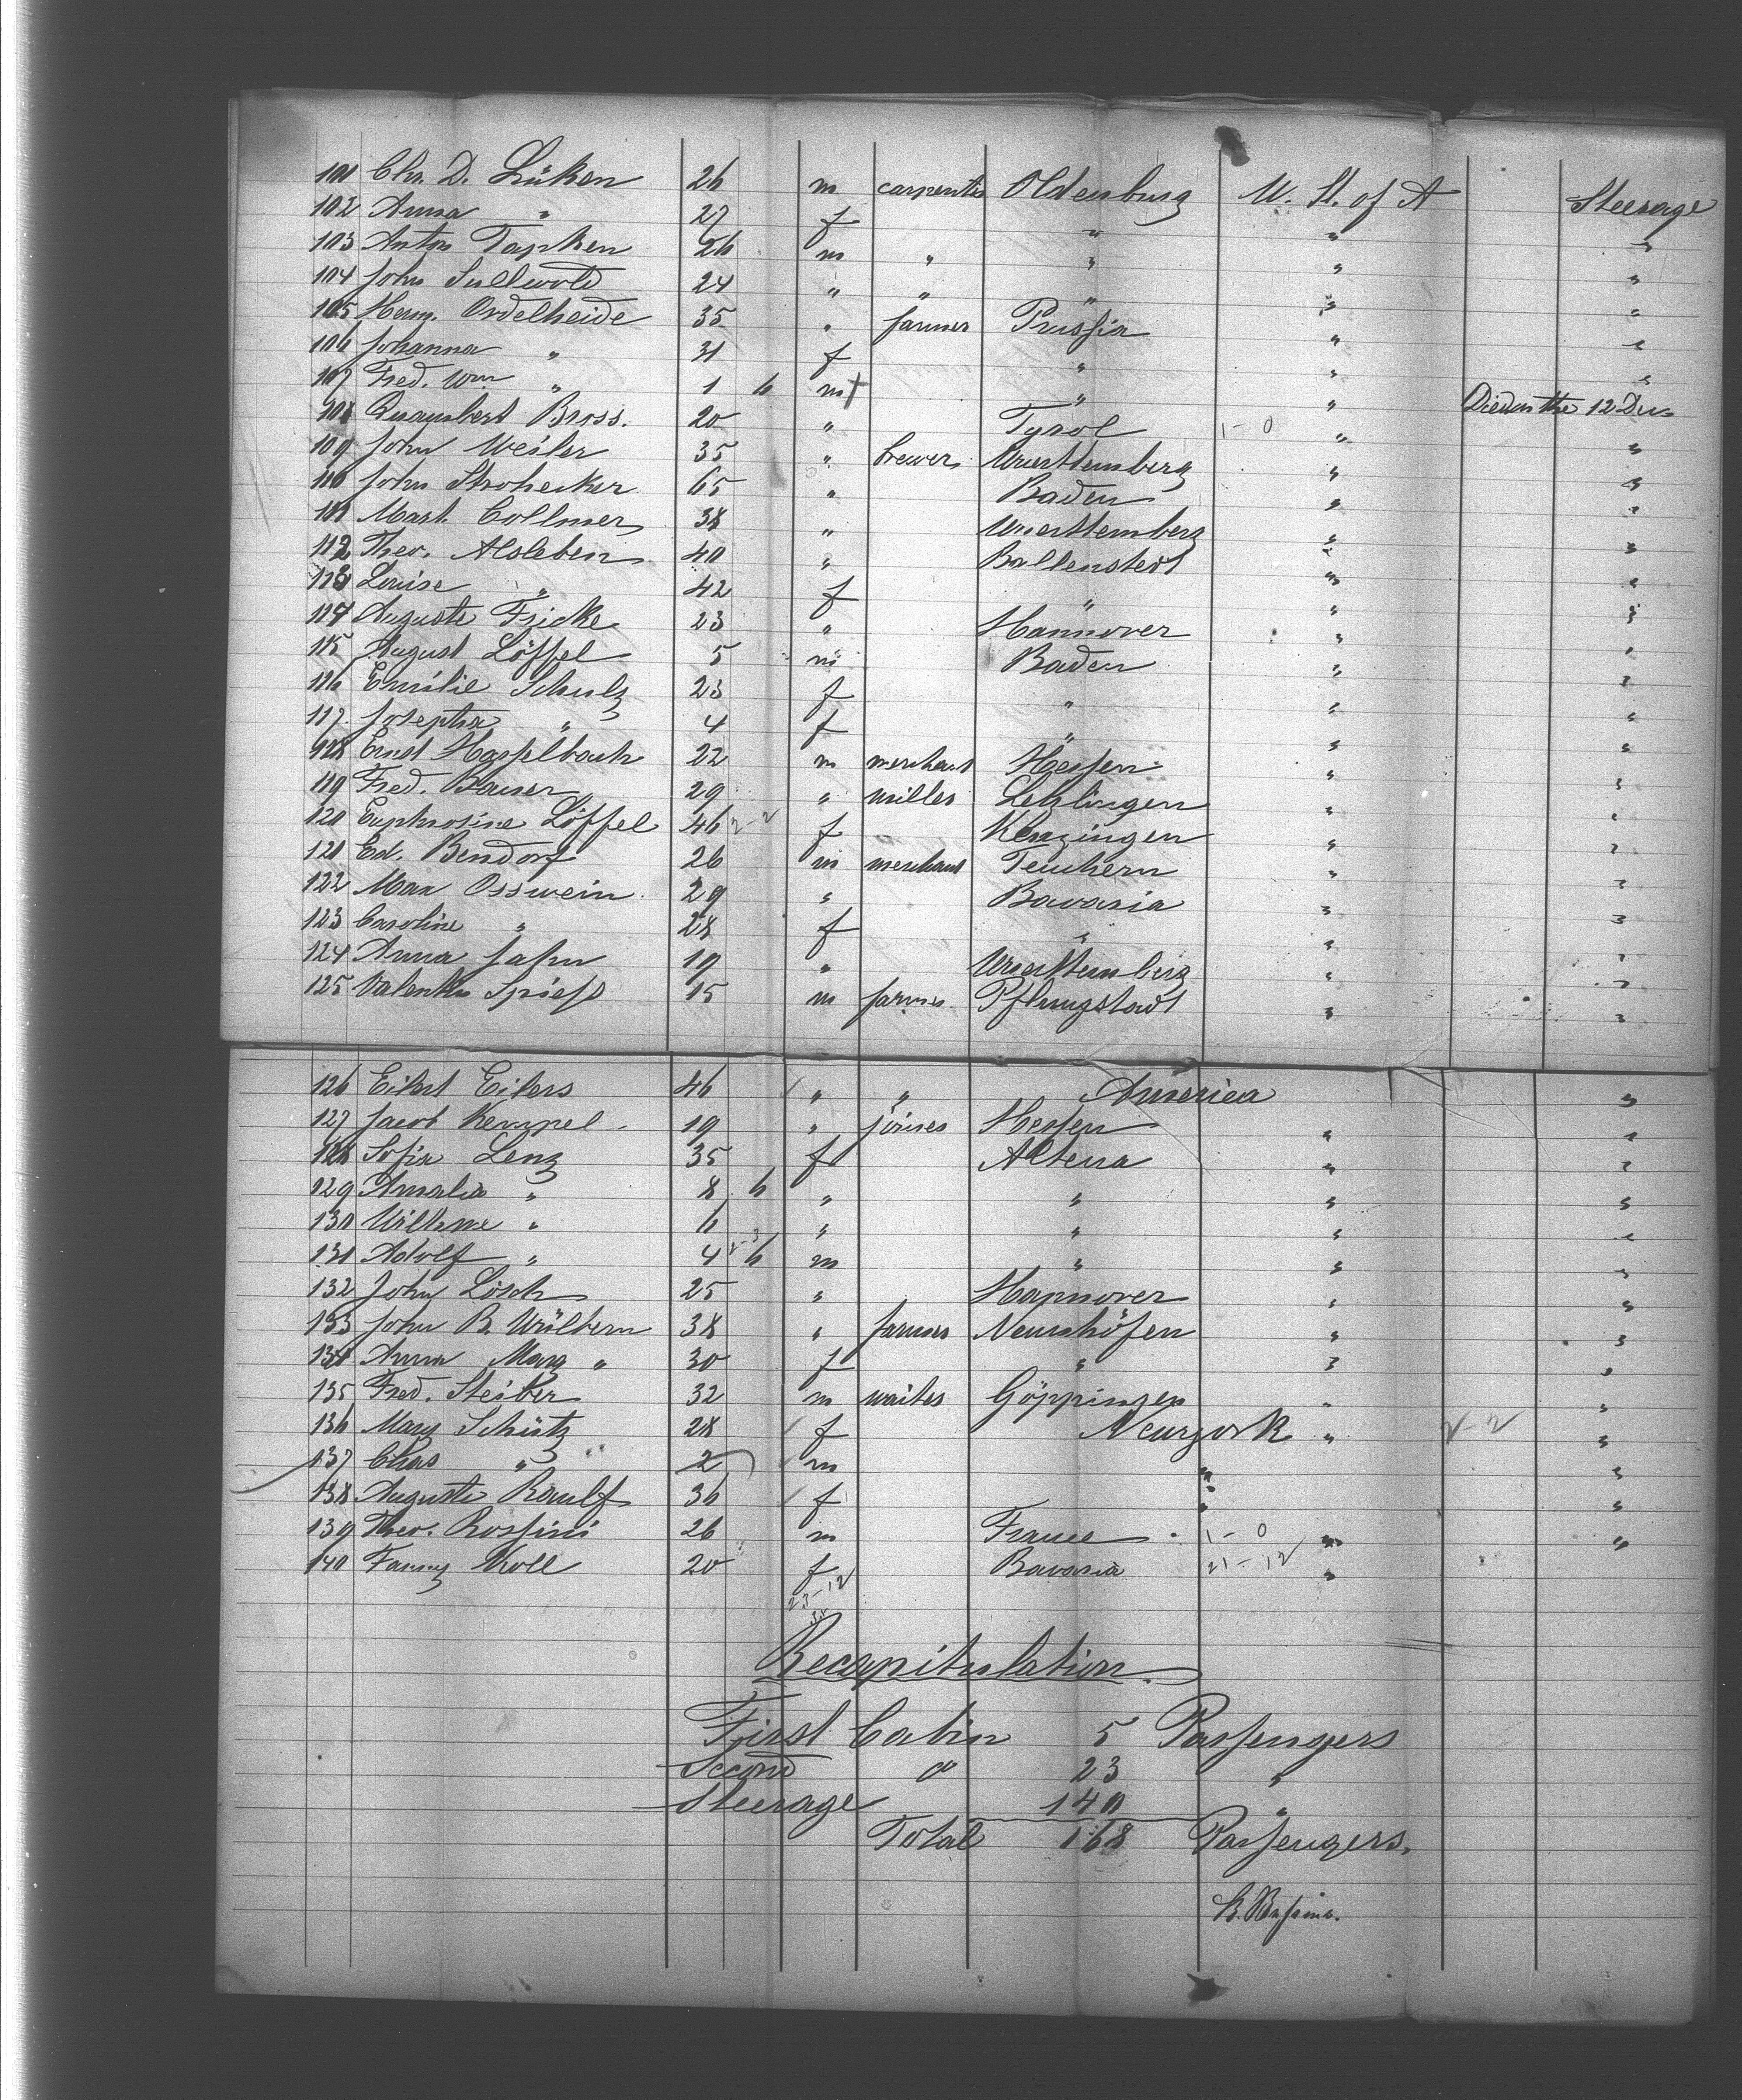 101 Chr. D. Lüken 26 m carpenter Oldenburg U. St. of A Steerage
102 Anna " 27 f " " "
103 Anton Tapken 26 m " " " "
104 John Sullwold 24 " " " " "
105 Herm. Ordelheide 35 " farmer Prussia " "
106 Johanna " 31 f " " "
107 Fred. Wm " 1 6 m † " " Died on the 12 Dec
108 Bross. 20 " Tyrol 1-0 " "
109 John Weiler 35 " brewer Wuerttemberg " "
110 John Strohecker 65 " Baden " "
111 Mart. Collmer 38 " Wuerttemberg " "
112 Theo. Alsleben 40 " Ballenstedt " "
113 Louise " 42 f " " "
114 Auguste Fricke 23 " Hannover " "
115 August Löffel 5 m Baden " "
116 Emilie Schulz 23 f " " "
117 Josepha " 4 f " " "
118 Ernst Hasselbach 22 m merchant Hessen " "
119 Fred. Bauser 29 " miller Letzlingen " "
120 Euphrosine Löffel 46 2-2 f Kenzingen " "
121 Ed. Bendorf 26 m merchant Teuchern " "
122 Max Osswein 29 " Bavaria " "
123 Caroline " 28 f " " "
124 Anna Jahn 19 " Wuerttemberg " "
125 Valentin Spiess 15 m farmer Pfungstadt " "
126 Eilert Eilers 46 " " America "
127 Jacob Kempel 19 " joiner Hessen " "
128 Sofia Lenz 35 f Altena " "
129 Amalia " 8 6 " " " "
130 Wilhme " 6 " " " "
131 Adolf " 4 6 m " " "
132 John Lösch 25 " Hannover " "
133 John B. Wülbern 38 " farmer Neuenhöfen " "
134 Anna Marg " 30 f " " "
135 Fred. Steiber 32 m waiter Göppingen " "
136 Mary Schütz 28 f Newyork " 2-2 "
137 Chas " 2 m " "
138 Auguste Raulf 36 f " "
139 Theo. Rossini 26 m France 1-0 " "
140 Fanny Kroll 20 f Bavaria 21-12 "
23-12
Recapitulation
First Cabin 5 Passengers
Second do 23 "
Steerage 140 "
Total 168 Passengers.